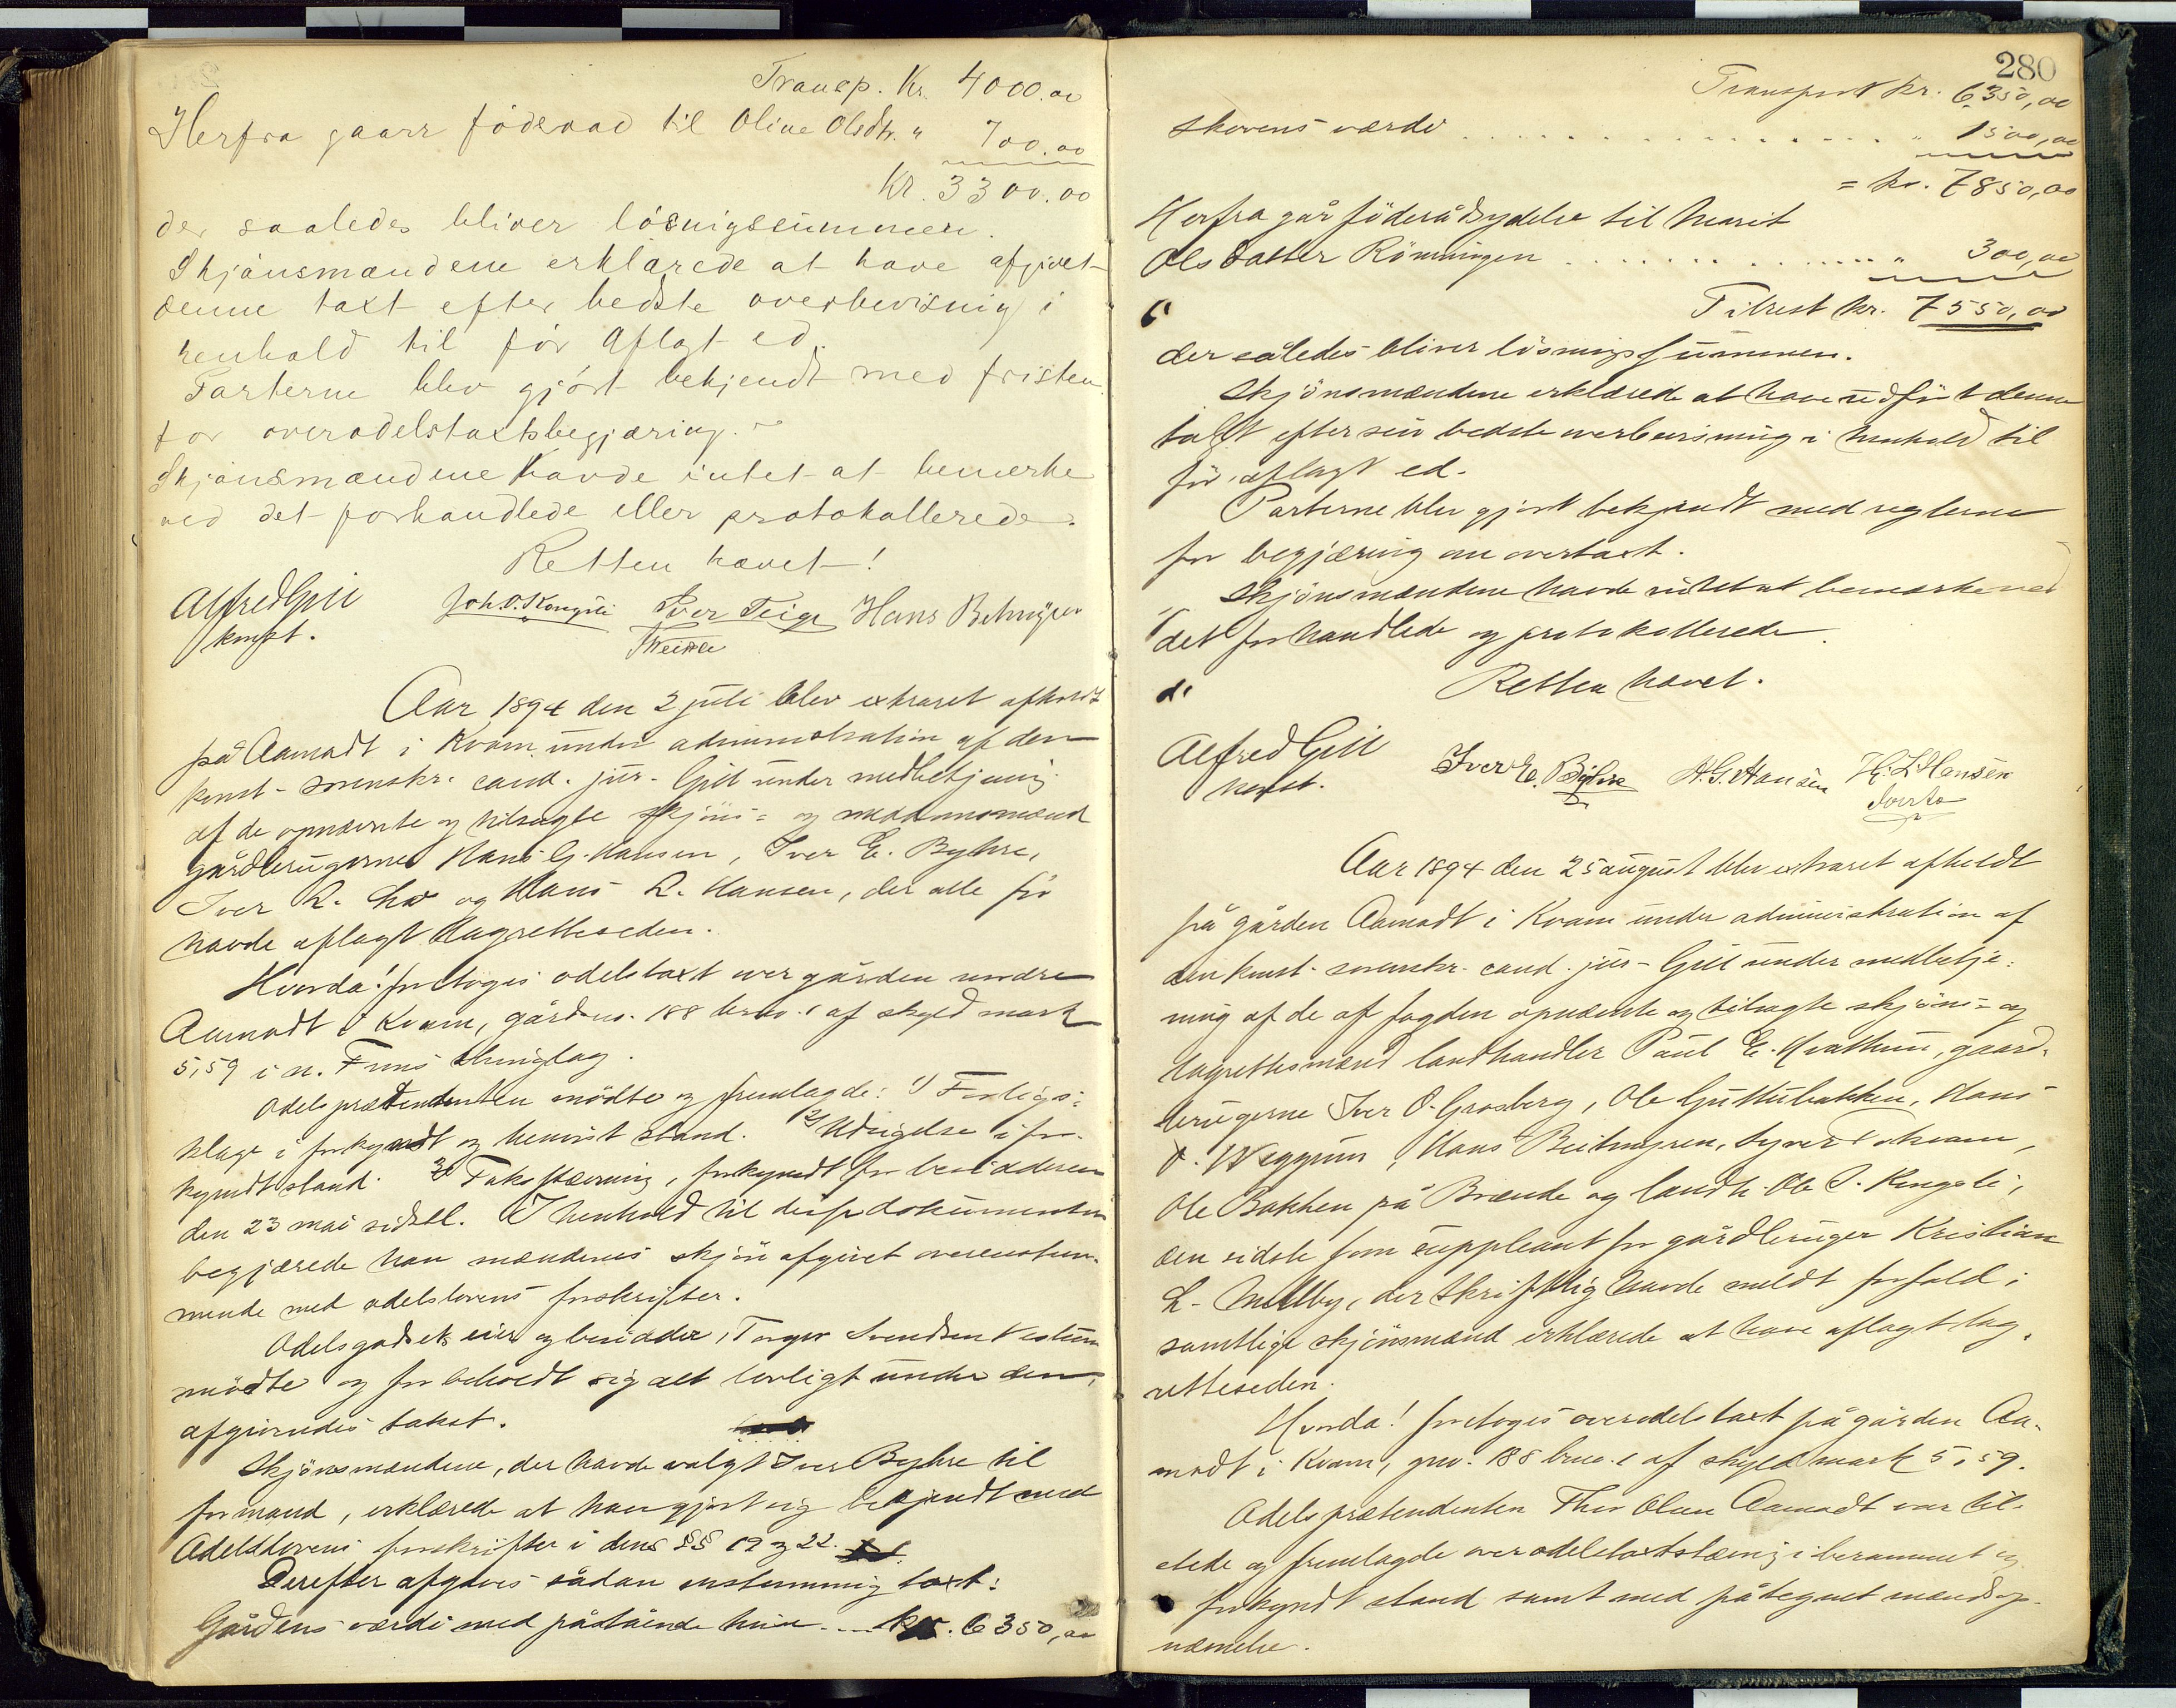 Transp. Kr. 4000.00
Herfra gaar föderaad til Oline Olsdtr. " 700.00
Kr. 3300.00
der saaledes bliver lösnigsummen.
Skjönsmændene erklærede at have afgivet
denne taxt efter bedste overbevisnig i
henhold til för aflagt ed.
Parterne blev gjort bekjendt med fristen
for overodelstaxtsbegjæring.
Skjönsmændene havde intet at bemerke
ved det forhandlede eller protokollerede.
Retten hævet!
Alfred Gill Joh. O. Kongsli Iver Teige Hans Beitmyren
konst.
Aar 1894 den 2 juli blev extraret afholdt
på Aamodt i Kvam under administration af den
konst. sorenskr. cand. jur. Gill under medbetjening
af de opnævnte og tilsagte skjöns= og
gårdbrugerne Hans G. Hansen, Iver E. Byhre,
Iver L. og Hans L. Hansen, der alle för
havde aflagt lagretteseden.
Hvorda! foretoges odelstaxt over gården nordre
Aamodt i Kvam, gårdsno. 188 brno. 1 af skyld mark
5,59 i n. Frons thinglag.
Odelsprætendenten mödte og fremlagde: 1) Forligs=
klage i forkyndt og henvist stand. 2) Udsigelse i for=
kyndt stand. 3) Takststævning, forkyndt for besidderen
den 23 mai sidstl. I henhold til disse dokumenter
begjærede han mændenes skjön afgivet overenstem=
mende med odelslovens forskrifter.
Odelsgodsets eier og besidder, Torger Svendsen
mödte og forbeholdt sig alt lovligt under den
afgivendes takst.
Skjönsmændene, der havde valgt Iver Byhre til
formand, erklærede at have gjort sig bekjendt med
Odelslovens forskrifter i dens §§ 19 og 22.
Derefter afgaves sådan enstemmig taxt:
Gårdens værdi med påstående huse ... kr. 6350,00
280
Transport kr. 6350,00
Skovens værdi . . . . . . . . . . " 1500,00
= kr. 7850,00
Herfra går föderådsydelse til Marit
Olsdatter Rönningen . . . . . . . . " 300,00
Tilrest kr. 7550,00
der således bliver lösningssummen.
Skjönsmændene erklærede at have udfört denne
taxt efter sin bedste overbevisning i henhold til
för aflagt ed.
Parterne blev gjort bekjendt med reglerne
for begjæring om overtaxt.
Skjönsmændene havde intet at bemærke ved
det forhandlede og protokollerede.
Retten hævet.
Alfred Gill Iver E. Byhre H. G. Hansen H. L. Hansen
konst.
Aar 1894 den 25 august blev extraret afholdt
på gården Aamodt i Kvam under administration af
den konst. sorenskr. cand. jur. Gill under medbetje=
ning af de af fogden opnævnte og tilsagte skjöns= og
lagrettesmænd landhandler Paul E. Kvathum, gaard=
brugerne Iver O. Grosberg, Ole Guttubakken, Hans
O. Veggum, Hans Beitmyren, Syver Kvam,
Ole Bakken på Brænde og landh. Ole J. Kongsli,
den sidste som suppleant for gårdbruger Kristian
L. Melby, der skriftlig havde meldt forfald;
samtlige skjönsmænd erklærede at have aflagt lag=
retteseden.
Hvorda! foretoges overodelstaxt på gården Aa=
modt i Kvam, gno. 188 brno. 1 af skyld mark 5,59.
Odelsprætendenten Thor Olsen Aamodt var til=
stede og fremlagde overodelstaxtstævning i berammet og
forkyndt stand samt med påtegnet mændsop=
nævnelse.